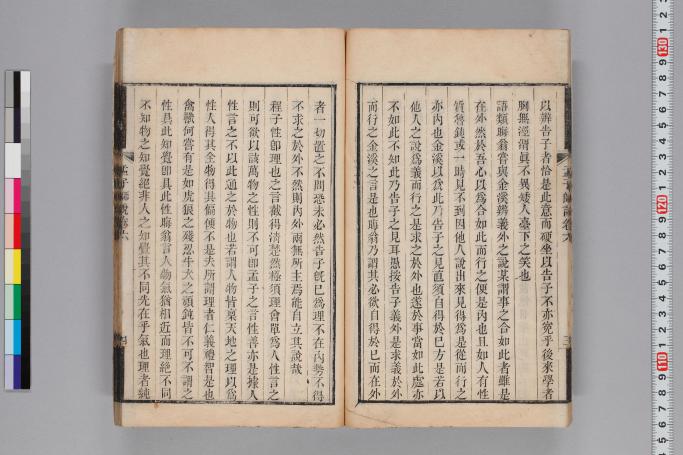 以辨告子者恰是此意而硬坐以告子不亦冤乎後來學者
胸無涇渭眞不異矮人臺下之笑也
語類聯翁嘗與金溪辨義外之說某謂事之合如此者雖是
在外然於吾心以爲合如此而行之便是內也且如人有性
質魯鈍或一時見不到因他人說出來見得爲是從而行之
亦內也金溪以爲此乃告子之見直須自得於己方是若以
他人之說爲義而行之是求之於外也遂於事當如此處亦
不如此不知此乃告子之見耳愚按告子義外是求義於外
而行之金溪之言是也晦翁乃謂其必欲自得於己而在外
者一切置之不問恐未必然告子旣已爲理不在內勢不得
不求之於外不然則內外兩無所主焉能自立其說哉
程子性卽理也之言截得淸楚然極須理會單爲人性言之
則可欲以該萬物之性則不可卽孟子之言性善亦是據人
性言之不以此通之於物也若謂人物皆稟天地之理以爲
性人得其全物得其偏便不是夫所謂理者仁義禮智是也
禽獸何嘗有是如虎狼之殘忍牛犬之頑鈍皆不可不謂之
性具此知覺卽具此性晦翁言人物氣猶相近而理絕不同
不知物之知覺絕非人之知覺其不同先在乎氣也理者純
孟子師說卷六